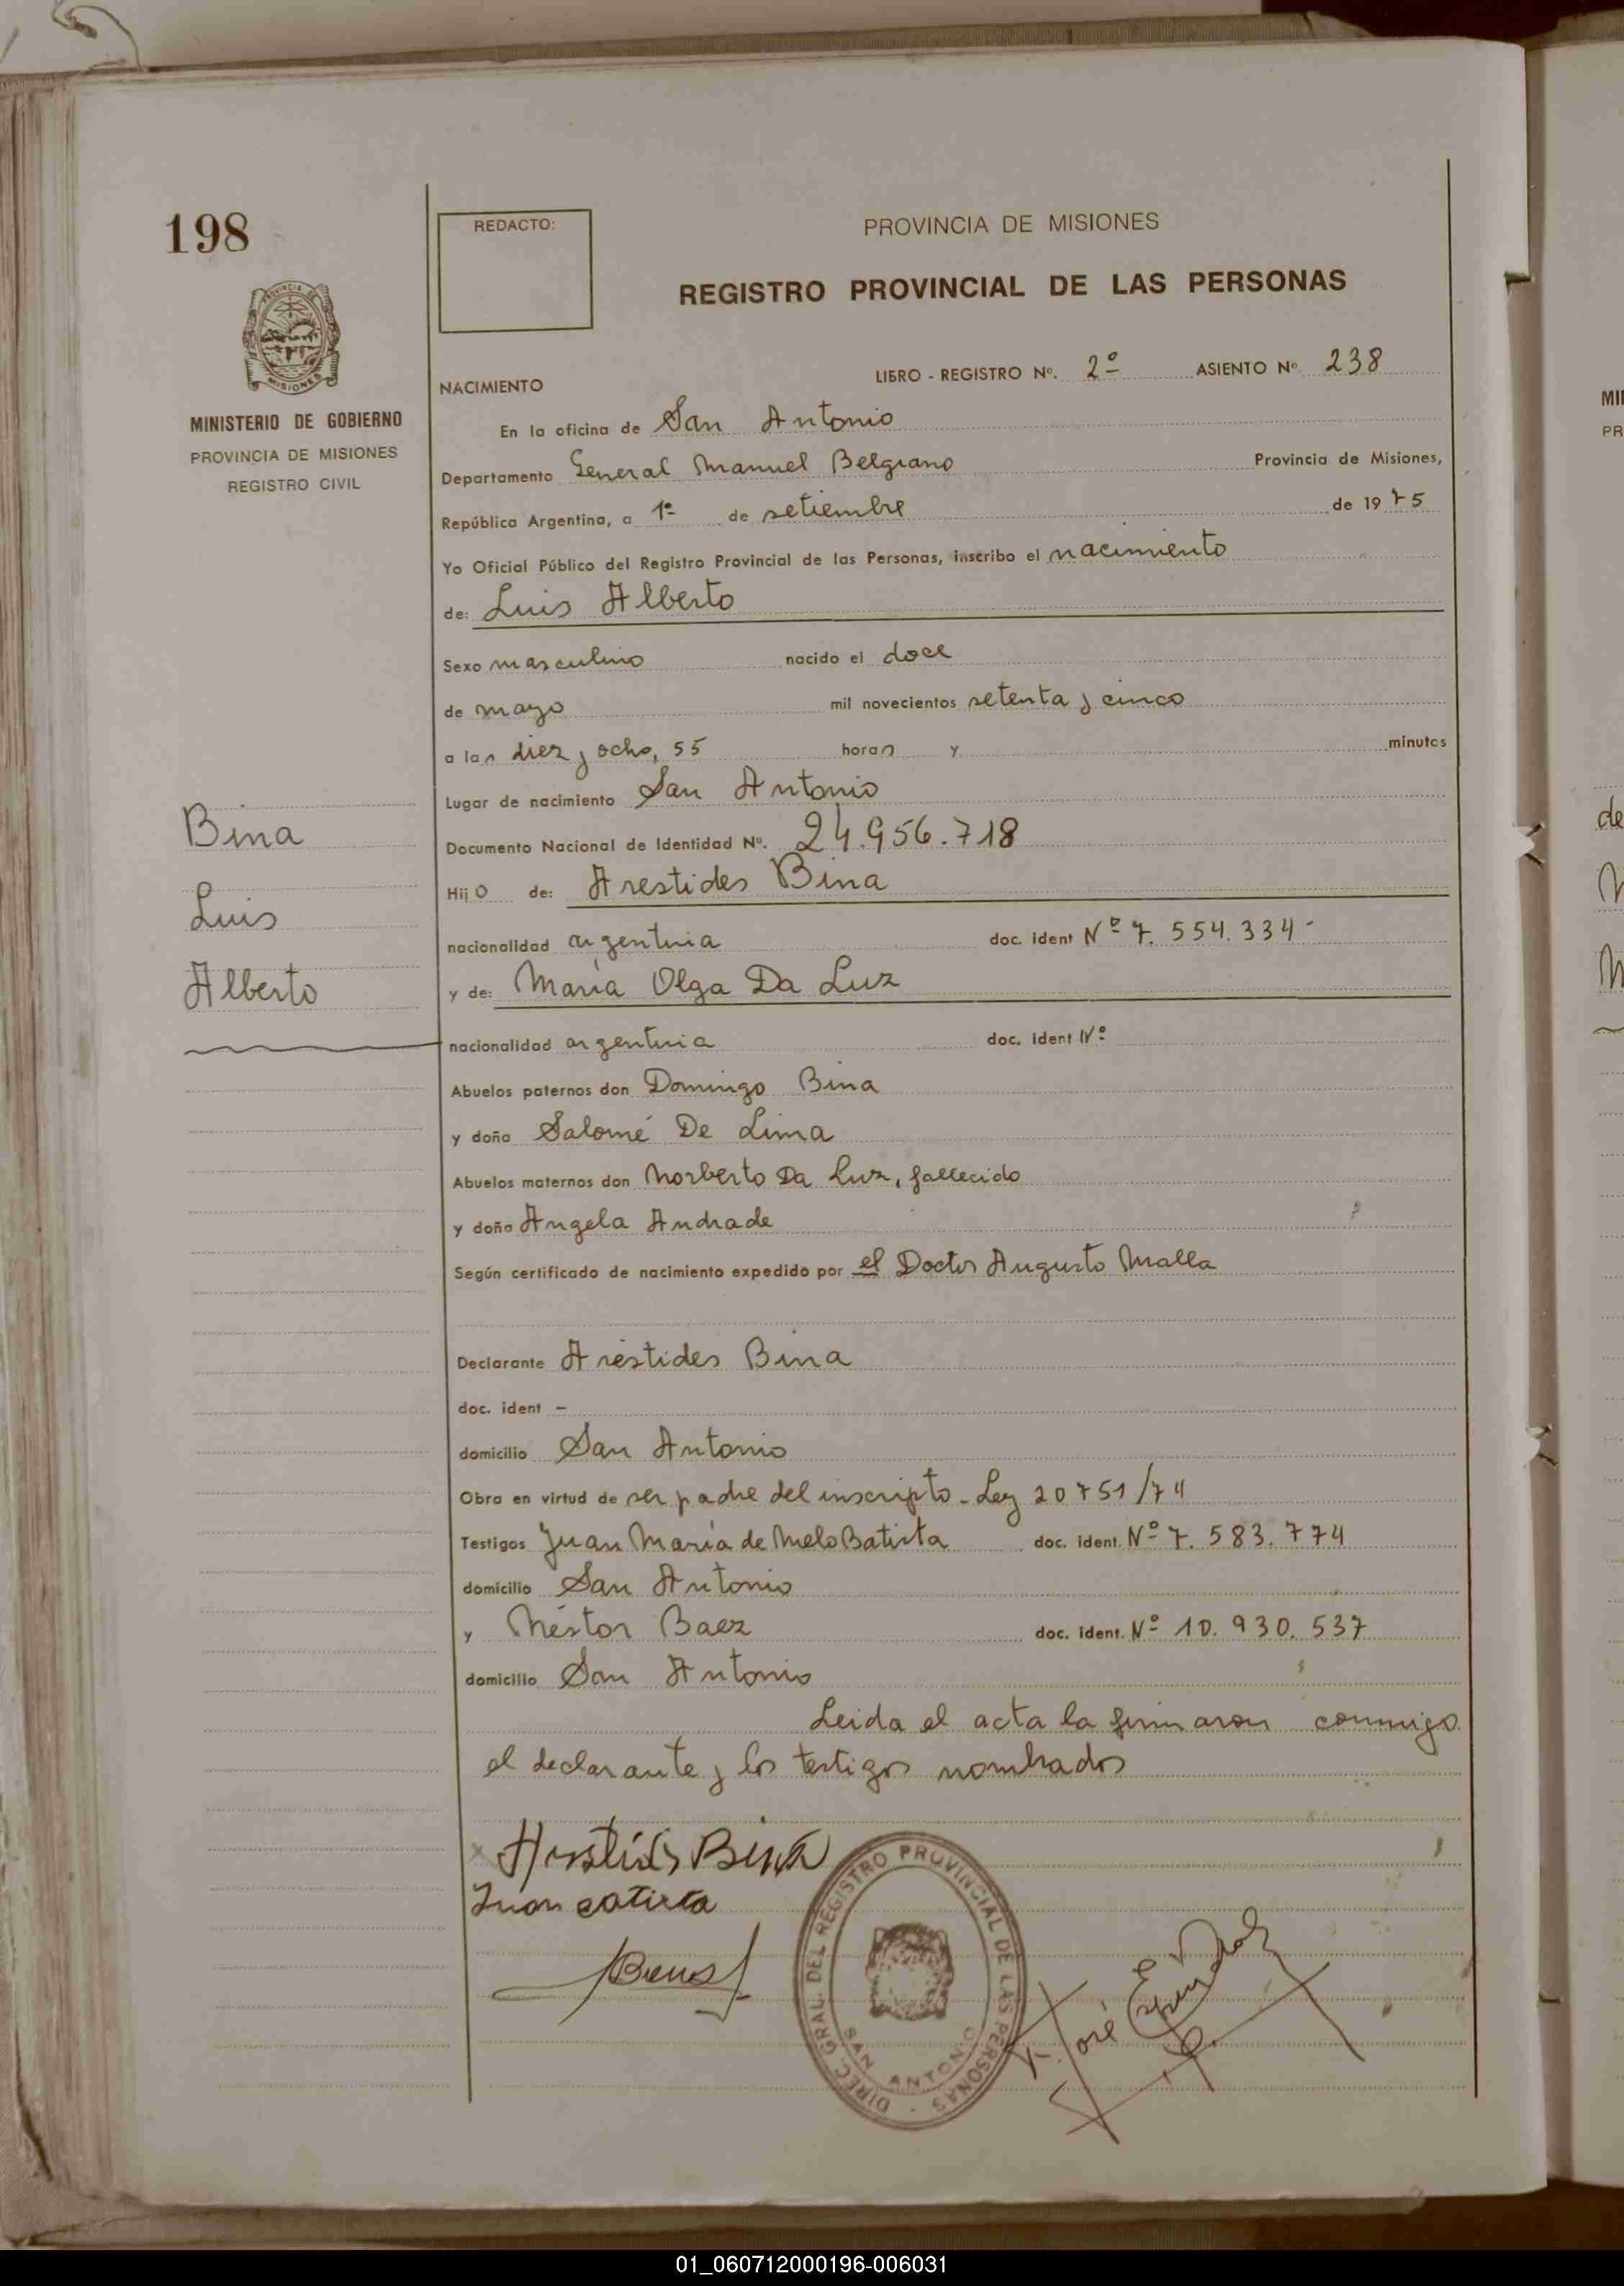 198
REDACTO:
PROVINCIA DE MISIONES
REGISTRO PROVINCIAL DE LAS PERSONAS
PROVINCIA DE
MISIONES
MINISTERIO DE GOBIERNO
PROVINCIA DE MISIONES
REGISTRO CIVIL
LIBRO - REGISTRO Nº. 2º ASIENTO Nº 238
NACIMIENTO
En la oficina de San Antonio
Departamento General Manuel Belgrano Provincia de Misiones,
República Argentina, a 1º de setiembre de 1975
Yo Oficial Público del Registro Provincial de las Personas, inscribo el nacimiento
de: Luis Alberto
Sexo masculino nacido el doce
de mayo mil novecientos setenta y cinco
a las diez y ocho, 55 horas y minutos
Lugar de nacimiento San Antonio
Documento Nacional de Identidad Nº. 24.956.718
Hijo de: Arestides Bina
nacionalidad argentina doc. ident Nº 7.554.334-
y de: María Olga Da Luz
nacionalidad argentina doc. ident Nº
Abuelos paternos don Domingo Bina
y doña Salomé De Lima
Abuelos maternos don Norberto Da Luz, fallecido
y doña Angela Andrade
Según certificado de nacimiento expedido por el Doctor Augusto Malla
Declarante Aréstides Bina
doc. ident -
domicilio San Antonio
Obra en virtud de ser padre del inscripto - Ley 20751/74
Testigos Juan María de Melo Batista doc. ident. Nº 7.583.774
domicilio San Antonio
y Néstor Baez doc. ident. Nº 10.930.537
domicilio San Antonio
Leida el acta la firmaron conmigo
el declarante y los testigos nombrados
Bina
Luis
Alberto
Arestides Bina
Juan Batista
DIREC. GRAL. DEL REGISTRO PROVINCIAL DE LAS PERSONAS -
SAN ANTONIO
José
MI
PR
de
01_060712000196-006031